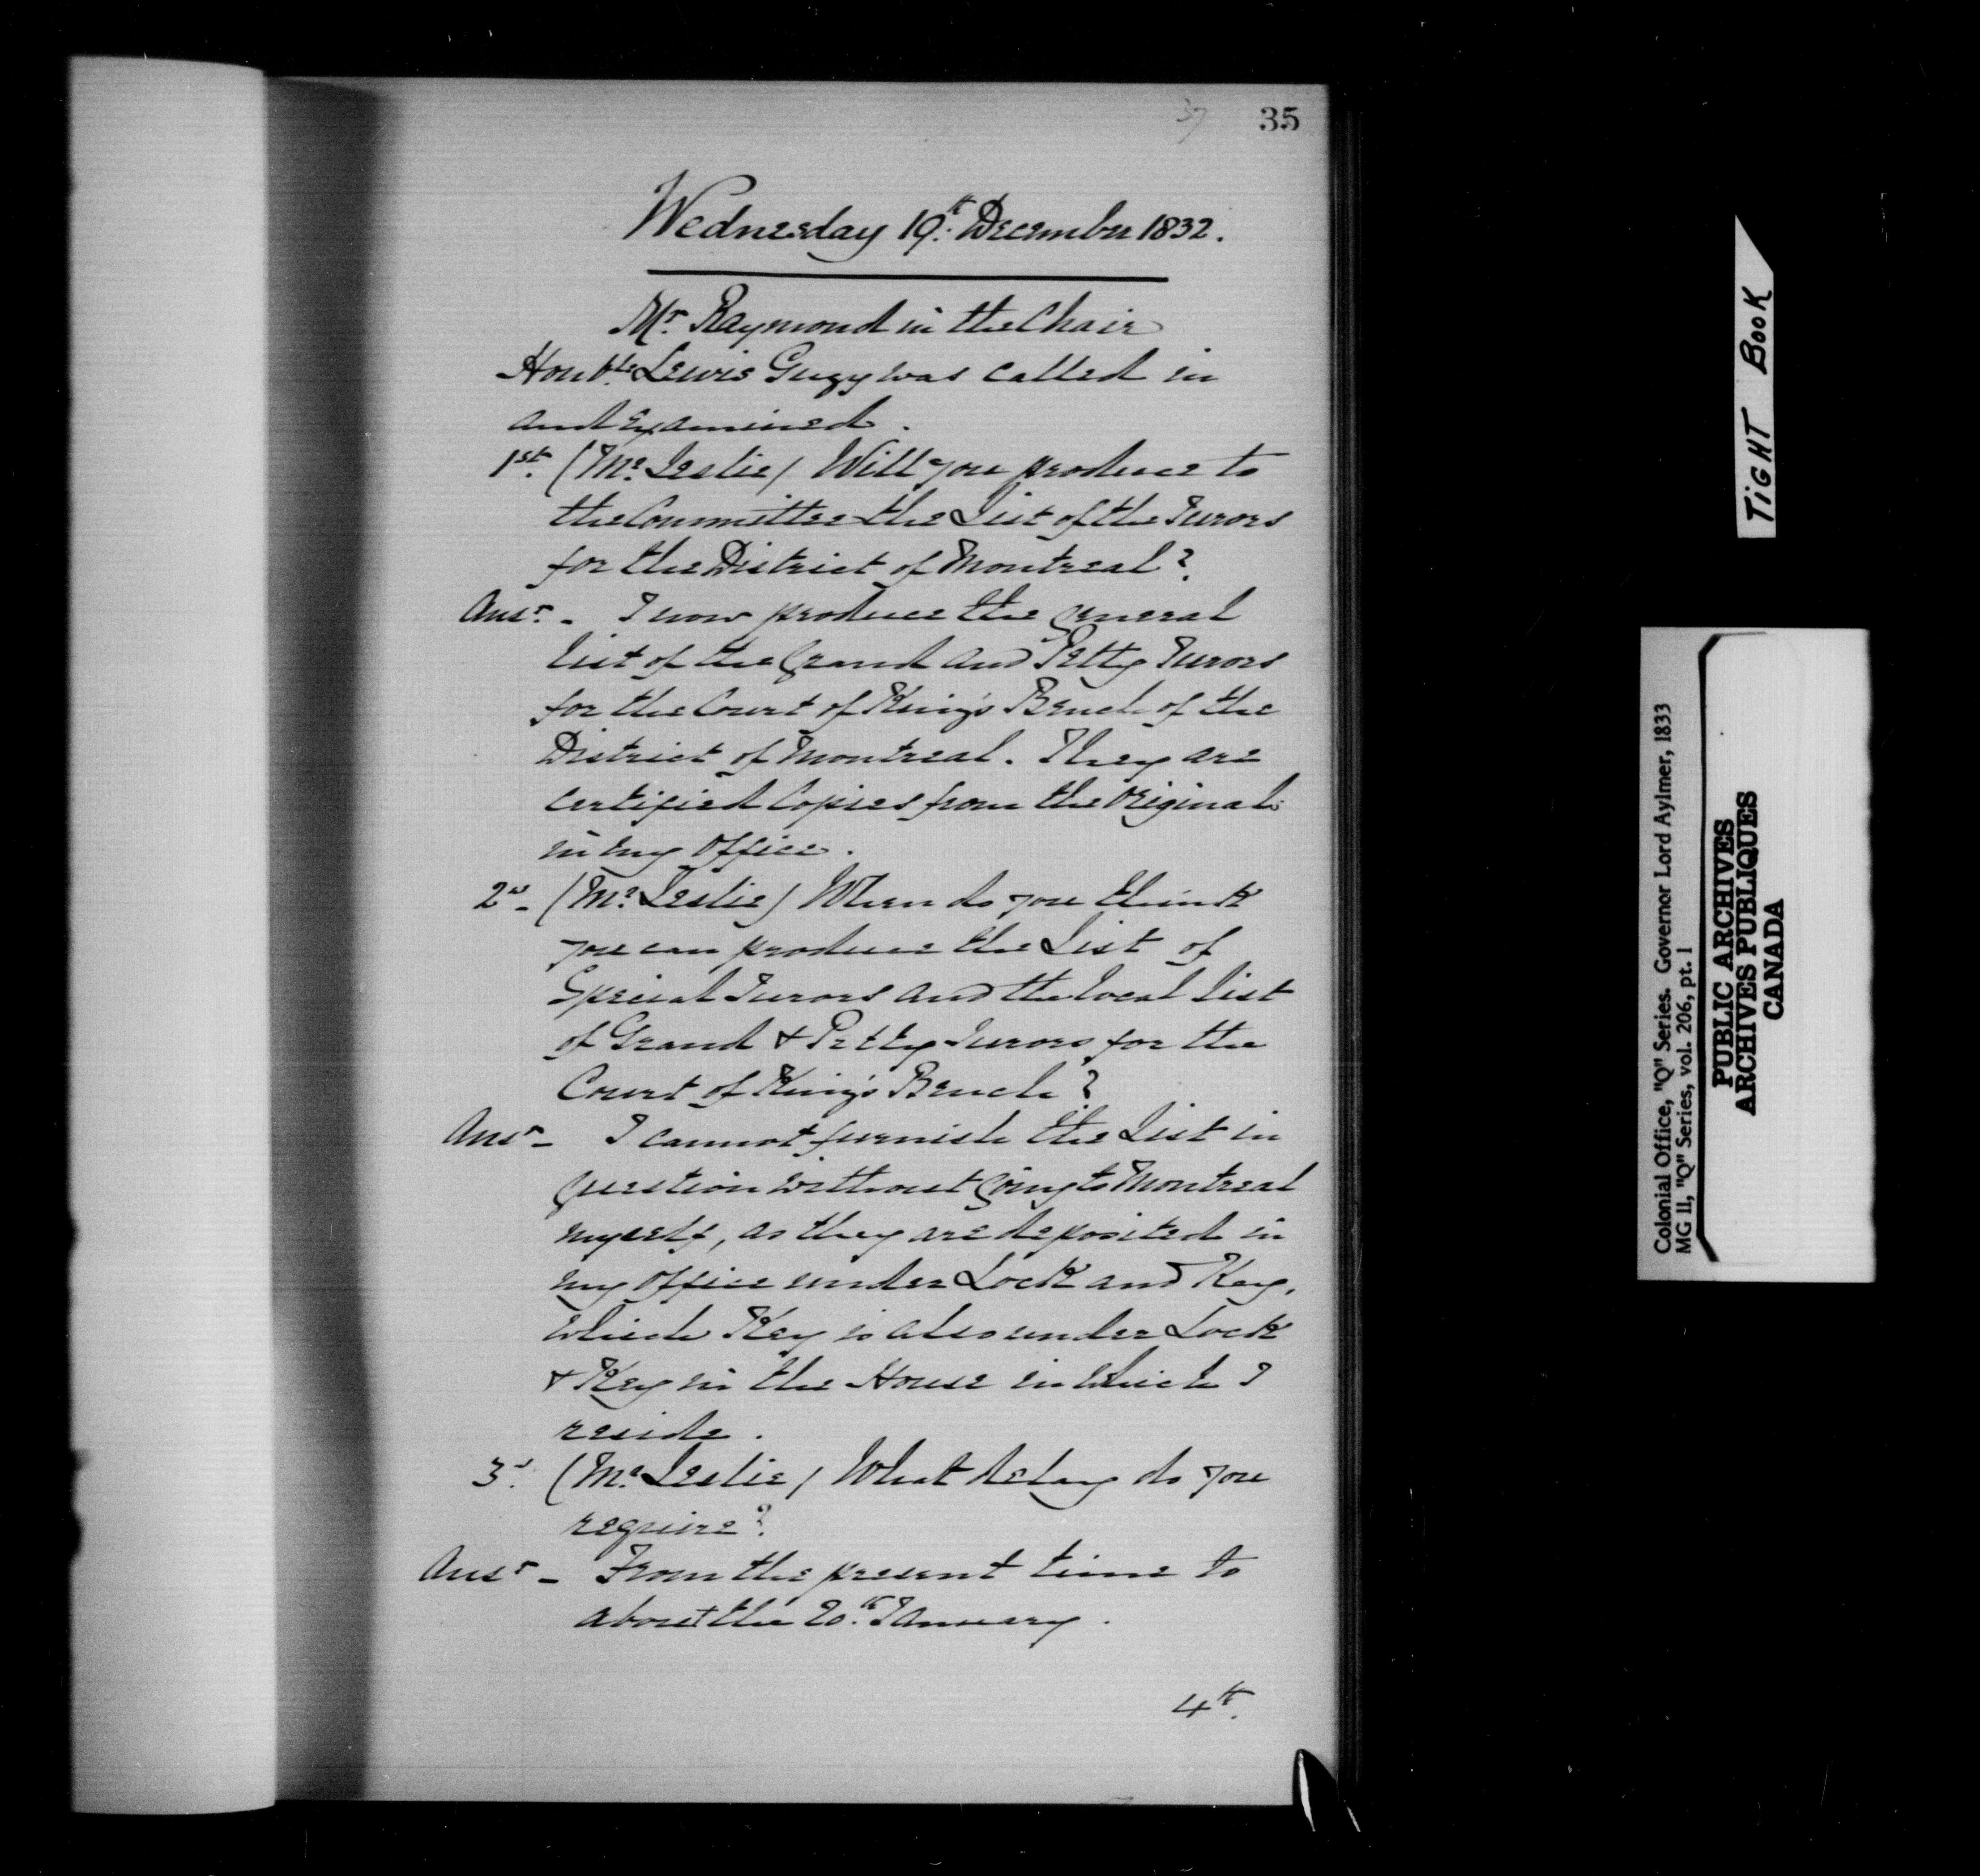 37
35
Wednesday 19th. December 1832.
Mr. Raymond in the Chair
Honble. Lewis Gugy was called in
and Examined.
1st. (Mr. Leslie) Will you produce to
the Committee the List of the Jurors
for the District of Montreal?
Ansr. - I now produce the general
list of the Grand and Petty Jurors
for the Court of King's Bench of the
District of Montreal. They are
certified Copies from the Originals
in my Office.
2nd - (Mr. Leslie) When do you think
you can produce the List of
Special Jurors and the local list
of Grand & Petty Jurors for the
Court of King's Bench?
Ansr - I cannot furnish the List in
question without going to Montreal
myself, as they are deposited in
my Office under Lock and Key,
which Key is also under Lock
& Key in the House in which I
reside.
3d. (Mr. Leslie) What delay do you
require?
Ansr - From the present time to
about the 20th. January.
4th.
TIGHT BOOK
Colonial Office, "Q" Series. Governor Lord Aylmer, 1833
MG 11, "Q" Series, vol. 206, pt. 1
PUBLIC ARCHIVES
ARCHIVES PUBLIQUES
CANADA